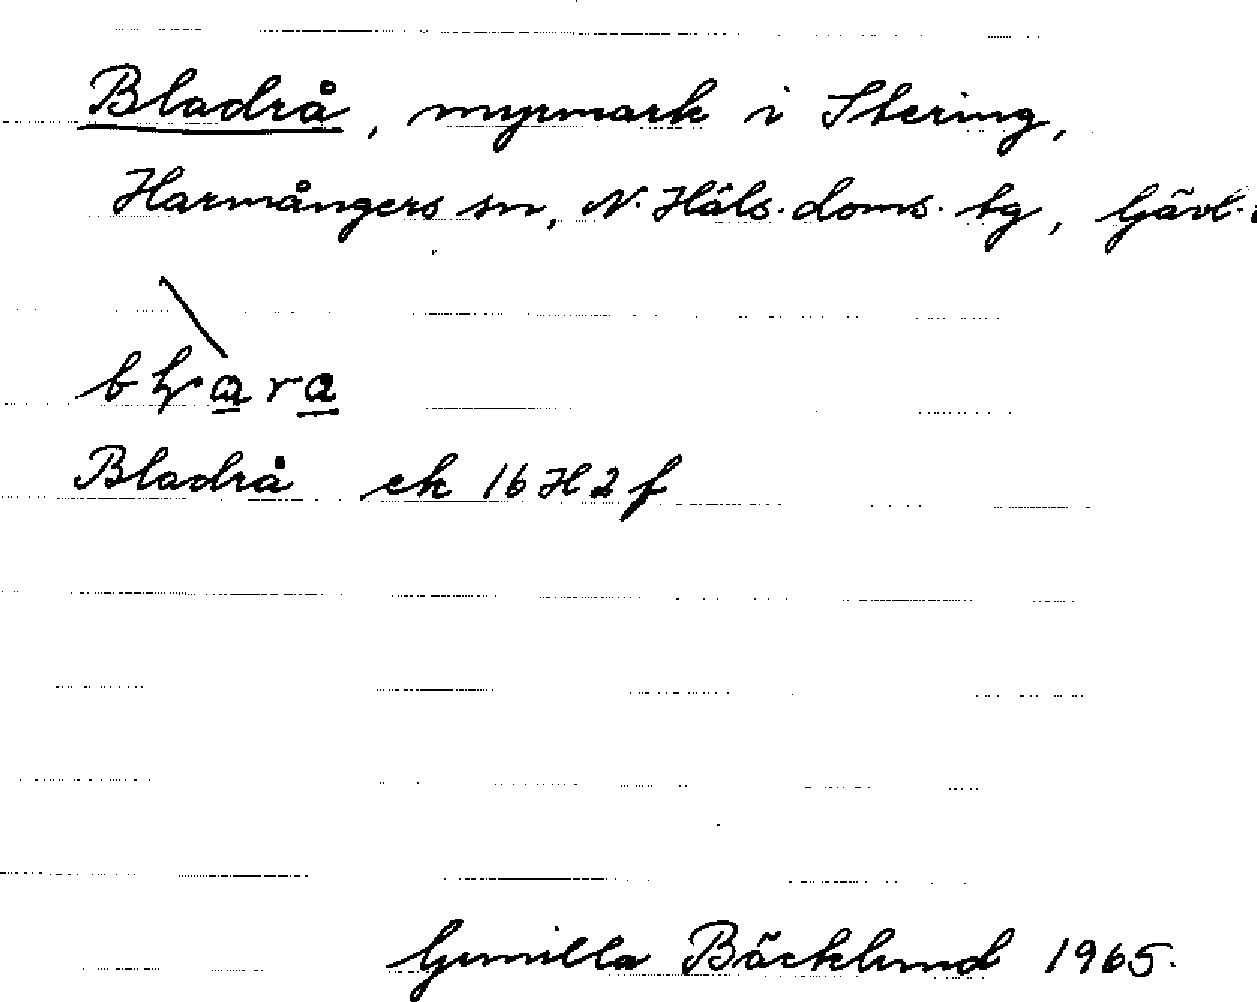 Bladrå, myrmark i Stering,
Harmångers sn, N. Häls. doms. tg, Gävl.
Bladrå ek 16H2f
Gunilla Bäcklund 1965.